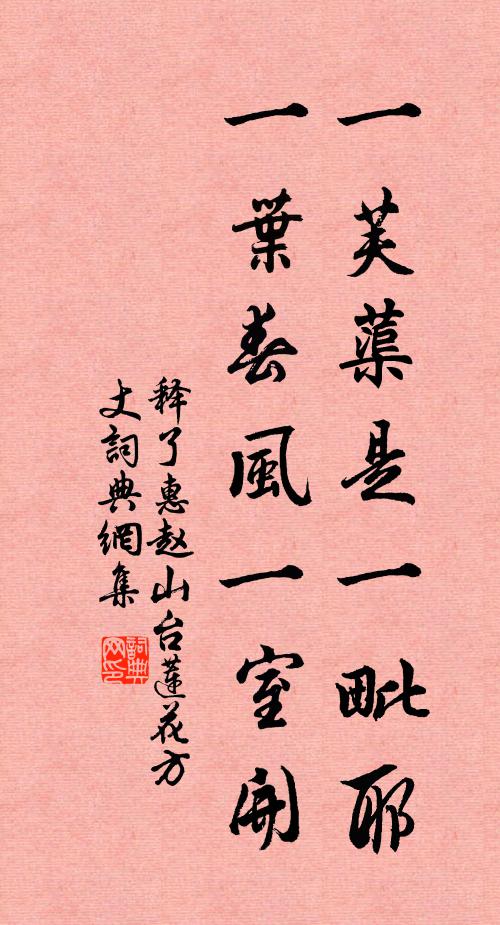 一芙蕖是一毗耶
一葉春風一室開
释了惠赵山台蓮花方
丈詞典網集
詞典网印